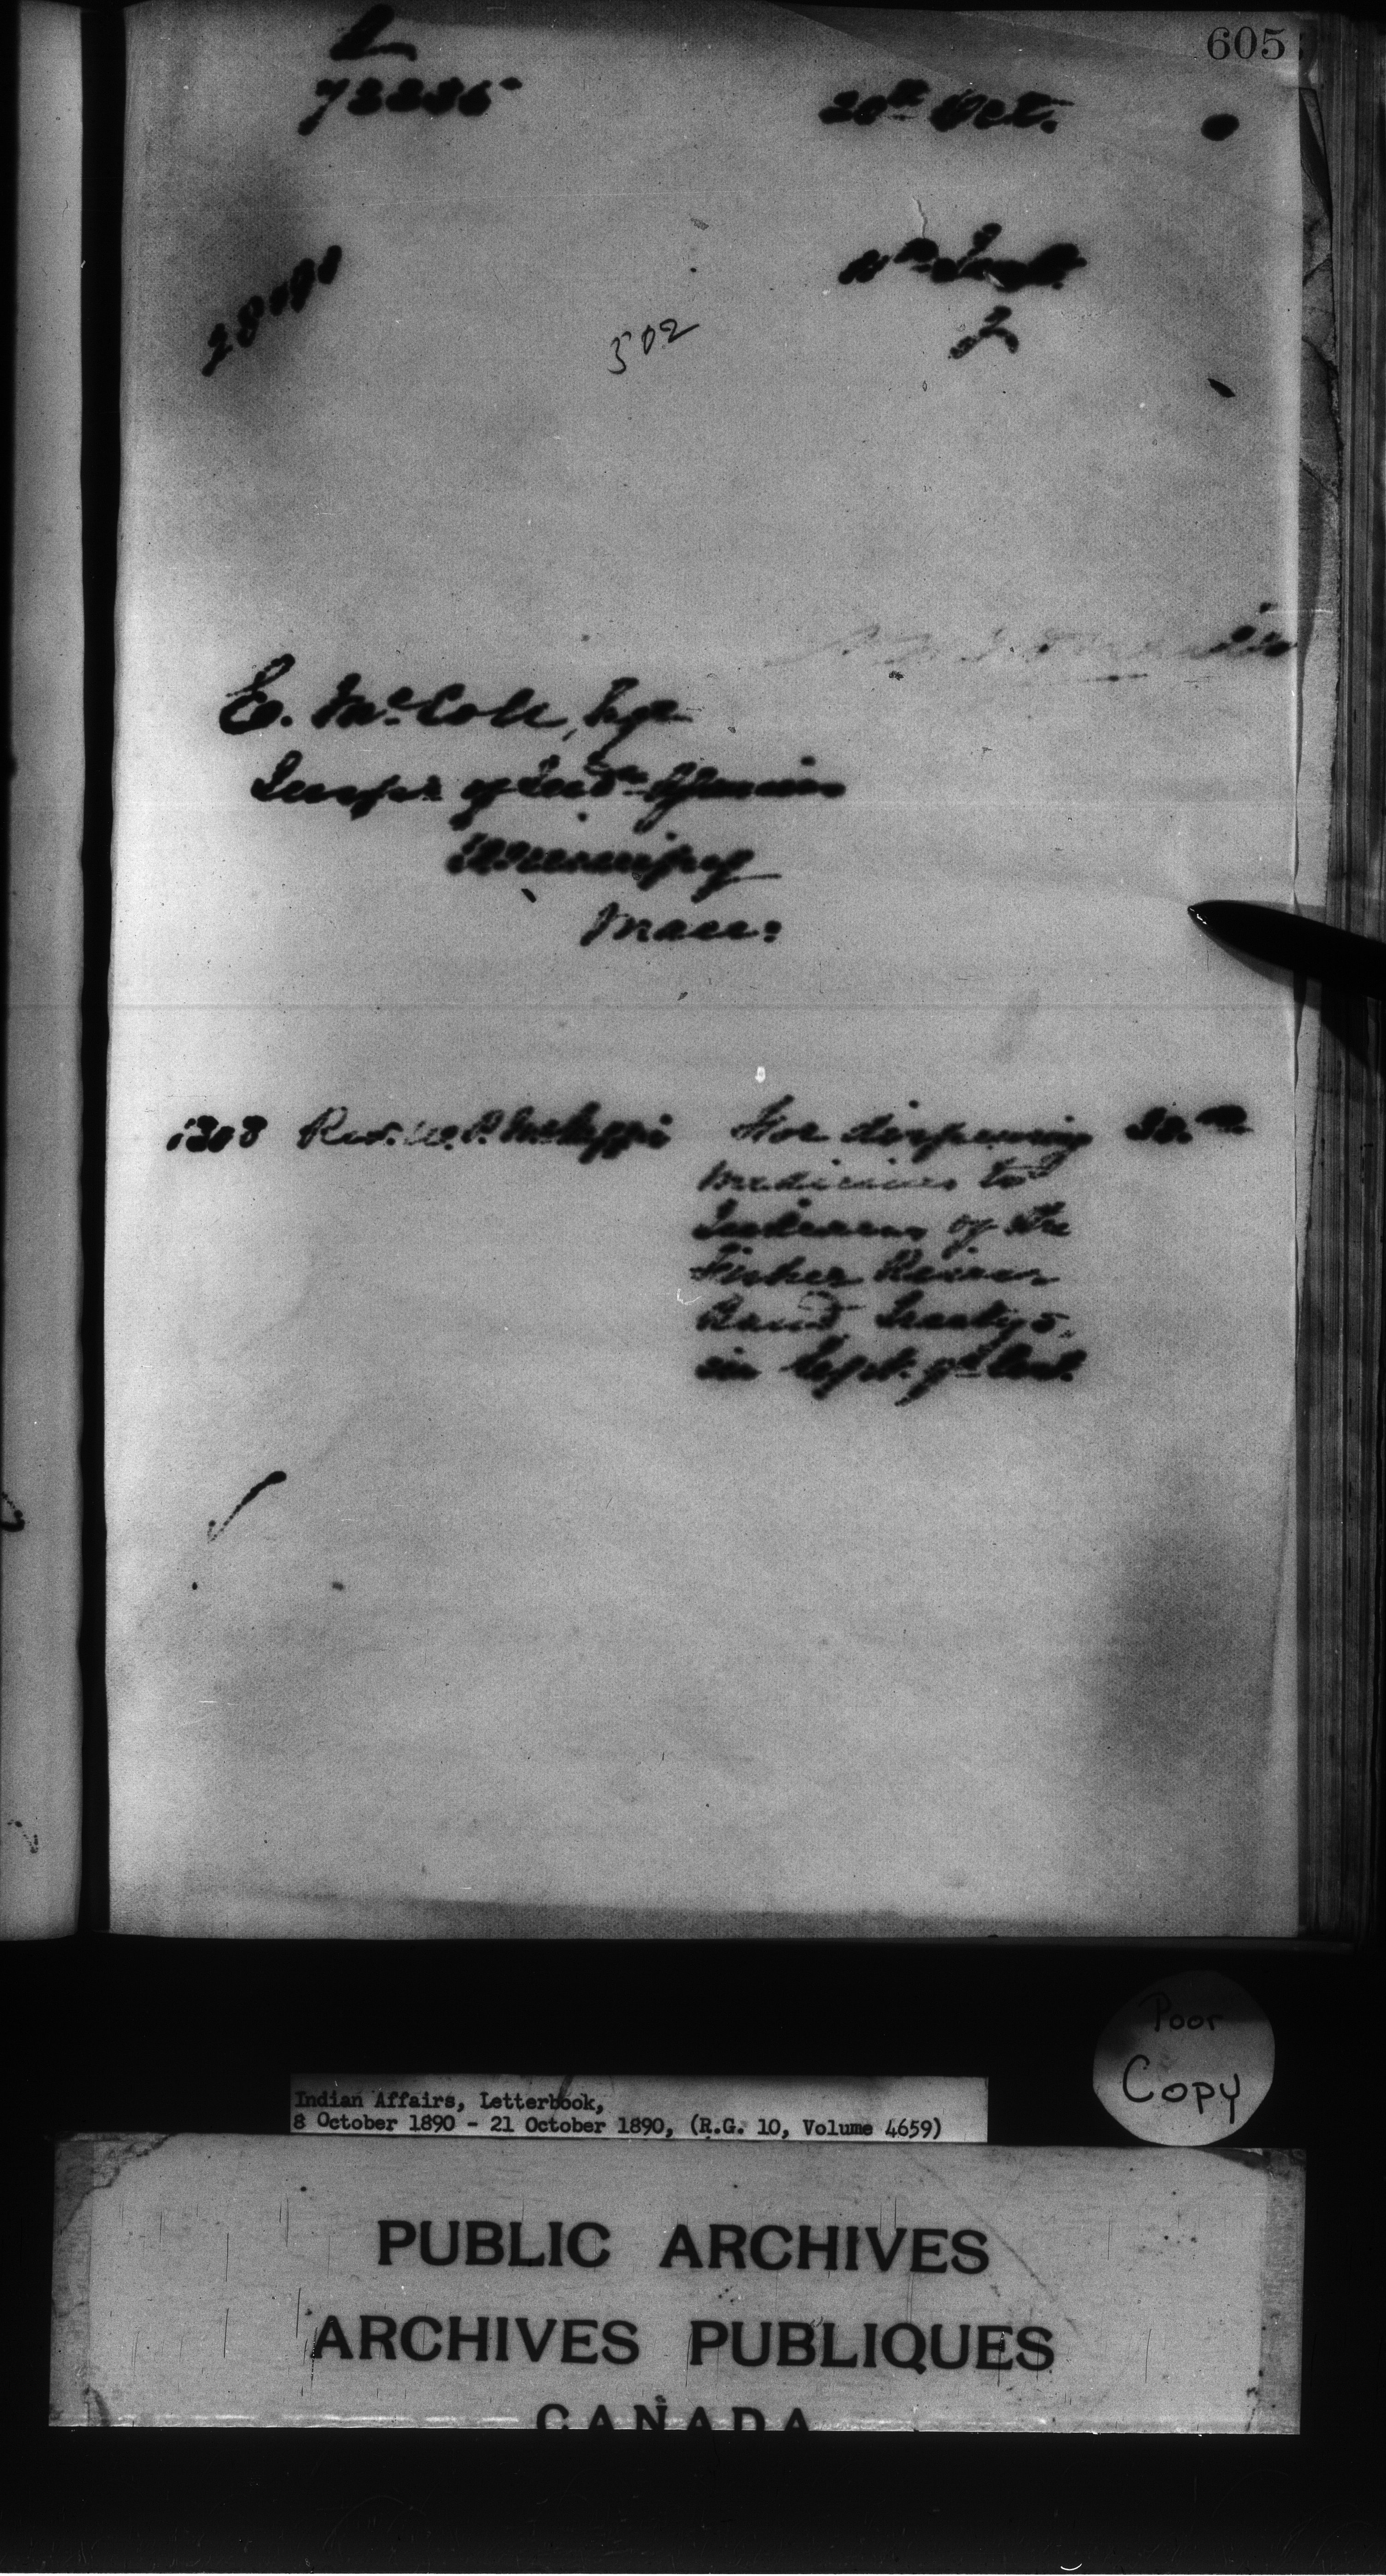 605
L
73335
20th Oct.
28090
11th Inst.
2
502
E. McColl, Esqre
Inspr. of Indn. Agencies
Winnipeg
Man:
1308 Rev. W. P. For dispensing
medicines to
Indians of the
Fisher River
Band Treaty 5,
in Sept. qr.
Poor
Copy
Indian Affairs, Letterbook,
8 October 1890 - 21 October 1890, (R.G. 10, Volume 4659)
PUBLIC ARCHIVES
ARCHIVES PUBLIQUES
CANADA